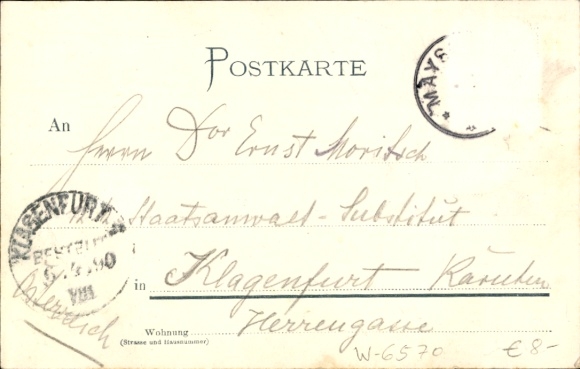 POSTKARTE
MAYS
An Herrn Dor Ernst Moritsch
k. k. Staatsanwalt-Substitut
KLAGENFURT
BESTELLT
VIII
in Klagenfurt Kärnten
Wohnung Herrengasse
(Strasse und Hausnummer)
W-6570 €8-